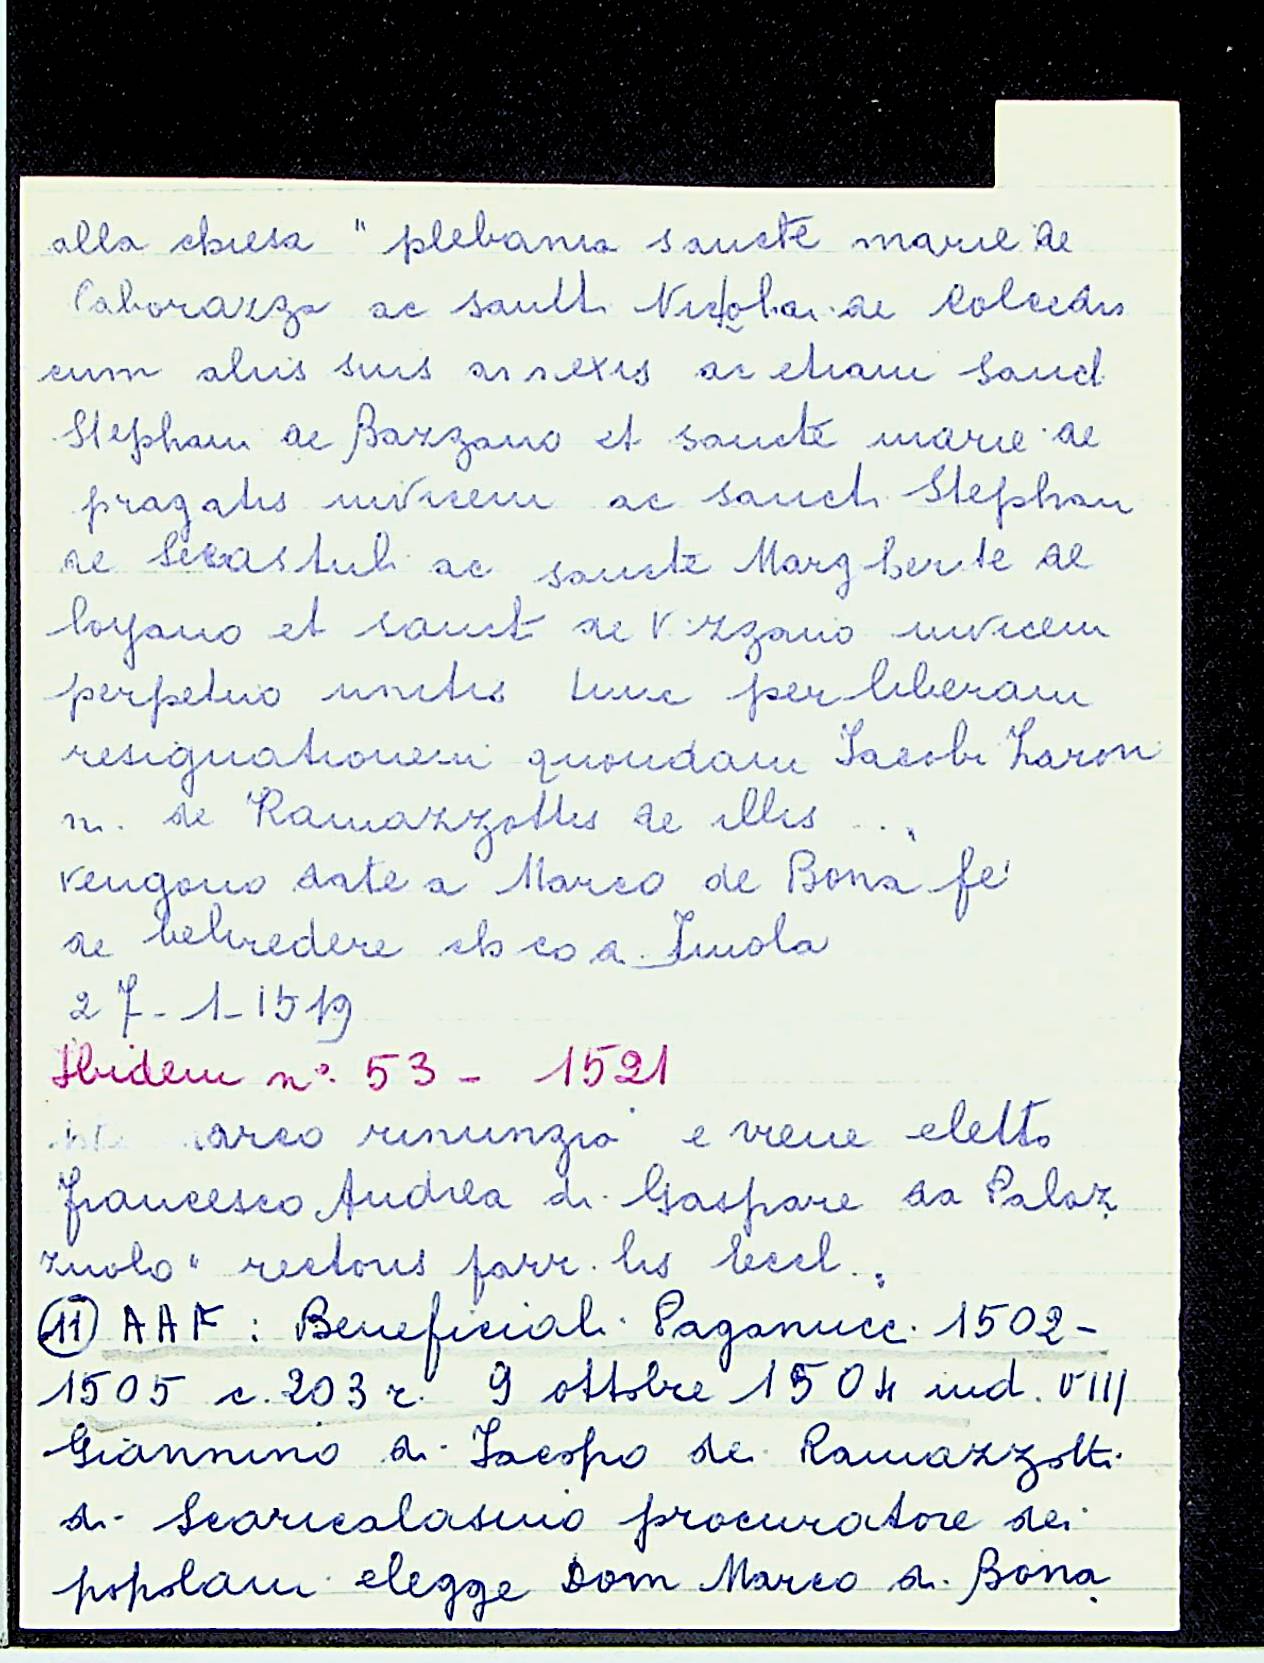 alla chiesa " plebania sancte marie de
Caborazza ac sancti Nicolai de Colcedis
cum aliis suis annexis ac etiam Sancti
Stephani de Bazzano et sancte marie de
pragatis invicem ac sancti Stephani
de ac sancte Margherite de
loyano et sancti de Vizzano invicem
perpetuo unitis tunc per liberam
resignationem quondam Jacobi
n. de Ramazzottis de illis ...
vengono date a Marco de Bona fe'
de belvedere Imola
27-1-1519
Ibidem n°. 53 - 1521
marco rinunzia e viene eletto
Francesco Andrea di Gaspare da Palaz
zuolo " rectoris parr. lis Eccl...
11 AAF : Beneficiali Paganucc. 1502-
1505 c. 203 r. 9 ottobre 1504 ind. VIII
Giannino di Jacopo dei Ramazzotti
di Scaricalasino procuratore dei
popolani elegge Dom Marco di Bona